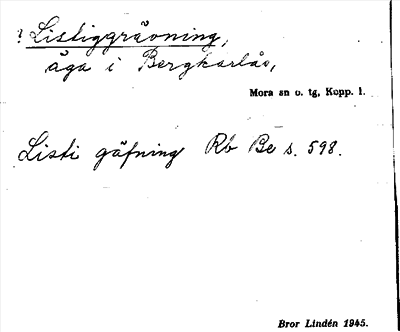 ? Listiggrävning,
äga i Bergkarlås,
Mora sn o. tg, Kopp. l.
Listi gäfning Rö Be s. 598.
Bror Lindén 1945.